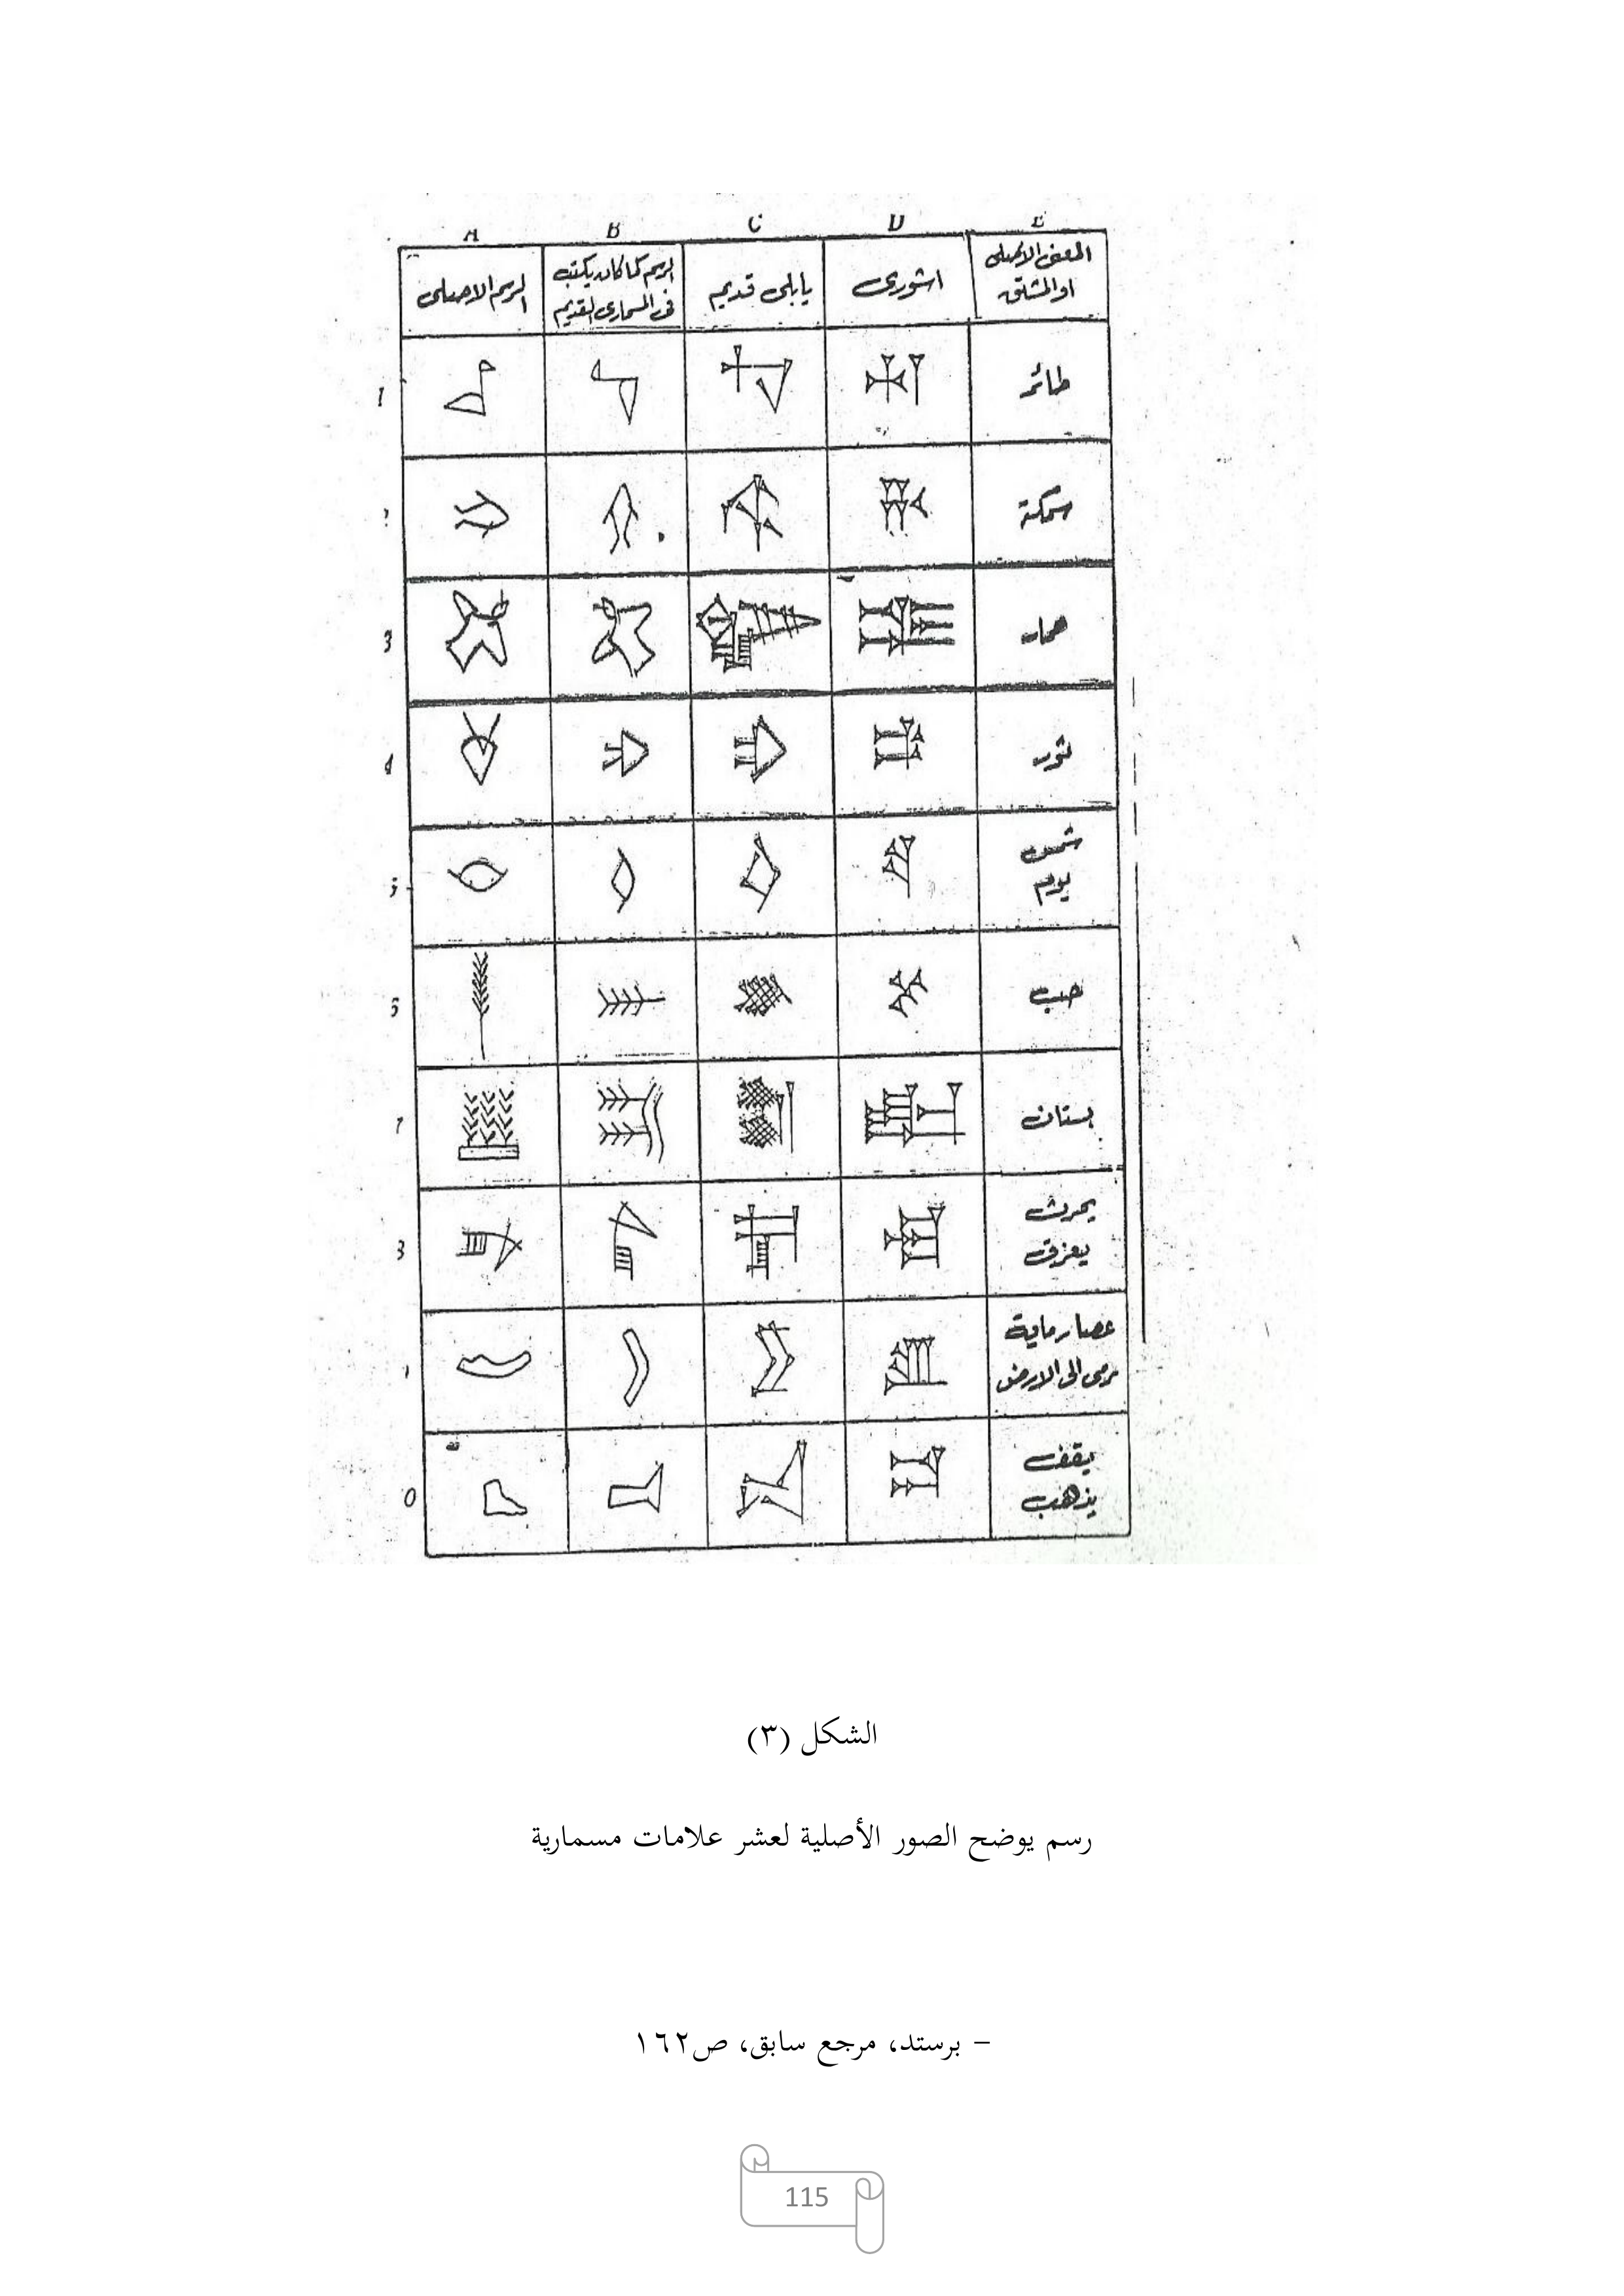 A B C D E
الرسم الاصلى
الرسم كما كان يكتب
فى المسمارى القديم
بابلى قديم
اشورى
المعنى الاصلى
او المشتق
1
طائر
2
سمكة
3
حمار
4
ثور
5
شمس
يوم
6
حب
7
بستان
8
يحرث
يعزق
عصا رماية
يرمى الى الارض
0
يقف
يذهب
الشكل (٣)
رسم يوضح الصور الأصلية لعشر علامات مسمارية
– برستد، مرجع سابق، ص١٦٢
115